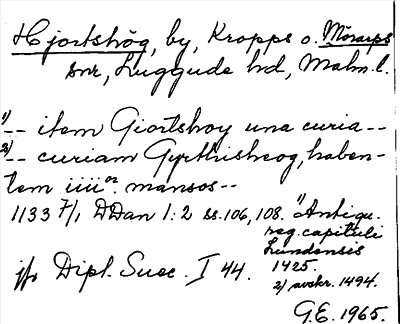 Hjortshög, by, Kropps o. Mörarps
snr, Luggude hd, Malm. l.
1) -- item Giortshoy una curia --
2) -- curiam Gyrthisheog, haben-
tem iiiior mansos --
1133 7/1, DDan 1:2 ss. 106, 108. 1) Antiqu.
reg. capituli
Lundensis
1425.
jfr Dipl. Suec. I 44. 2) avskr. 1494.
G.E. 1965.